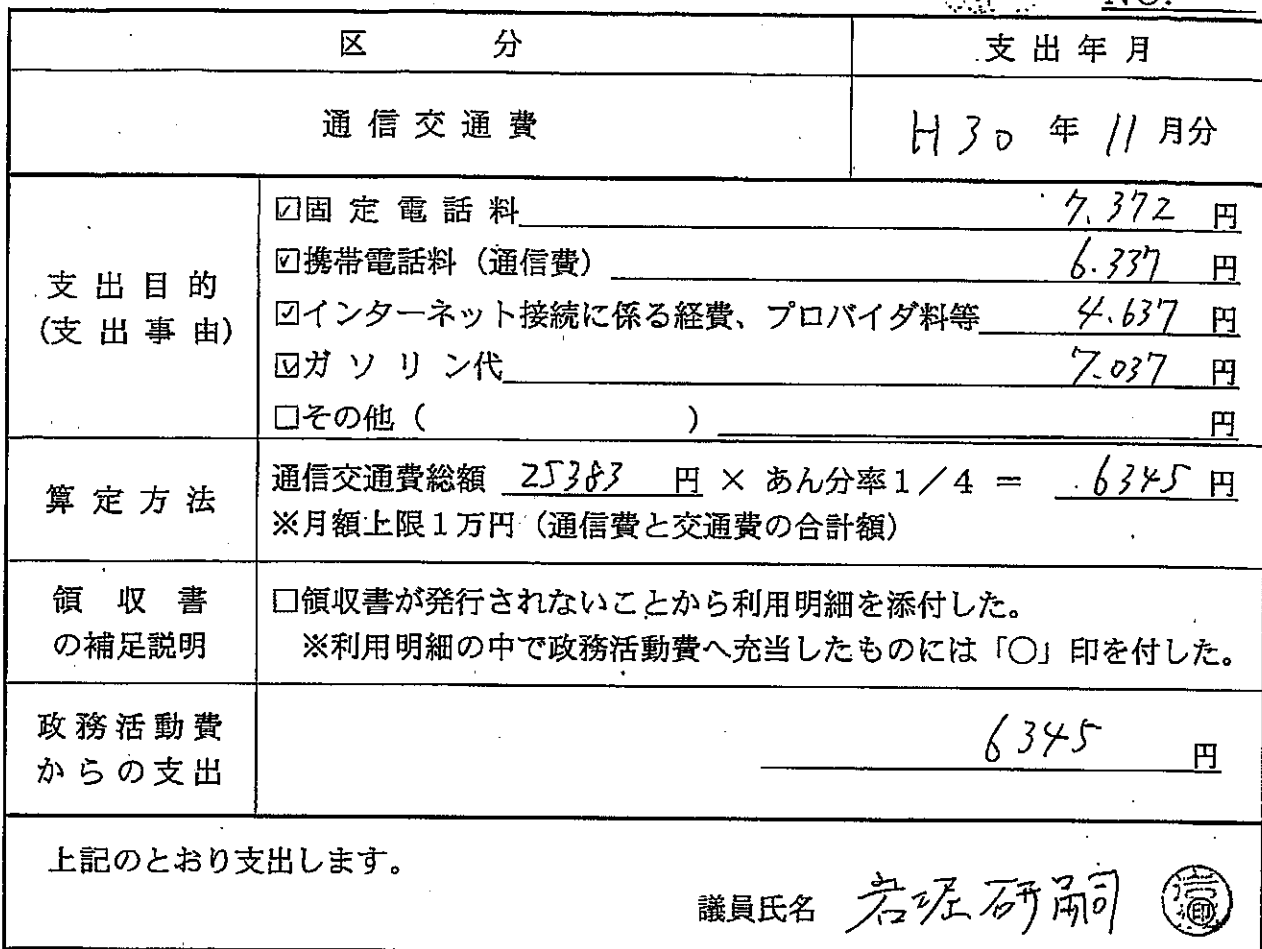 NO.
区 分 支出年月
通信交通費 H30年11月分
支出目的
(支出事由)
☑固定電話料 7,372 円
☑携帯電話料(通信費) 6.337 円
☑インターネット接続に係る経費、プロバイダ料等 4.637 円
☑ガソリン代 7.037 円
□その他( ) 円
算定方法
通信交通費総額 25383 円 × あん分率1/4 = 6345 円
※月額上限1万円(通信費と交通費の合計額)
領収書
の補足説明
□領収書が発行されないことから利用明細を添付した。
※利用明細の中で政務活動費へ充当したものには「○」印を付した。
政務活動費
からの支出
6345 円
上記のとおり支出します。
議員氏名 岩堀研嗣 印